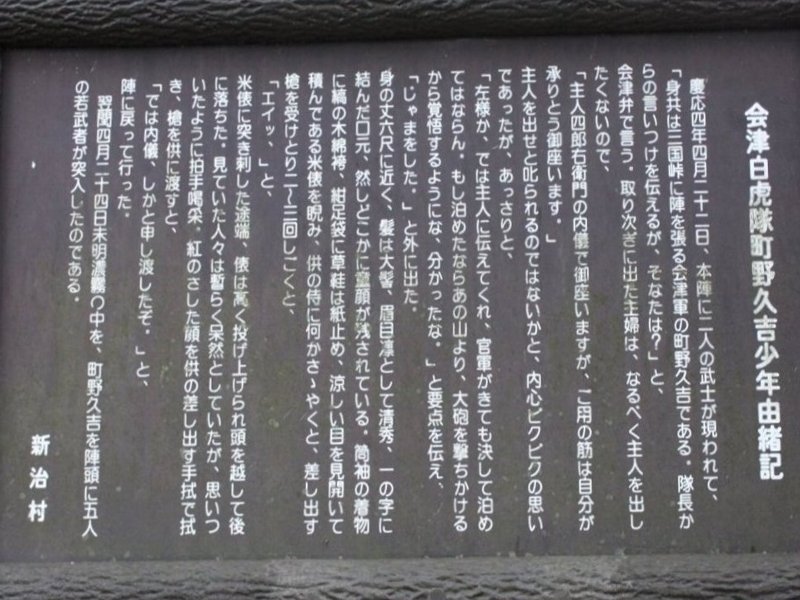 会津白虎隊町野久吉少年由緒記
慶応四年四月二十二日、本陣に二人の武士が現われて、
「身共は三国峠に陣を張る会津軍の町野久吉である。隊長か
らの言いつけを伝えるが、そなたは?」と、
会津弁で言う。取り次ぎに出た主婦は、なるべく主人を出し
たくないので、
「主人四郎右衛門の内儀で御座いますが、ご用の筋は自分が
承りとう御座います。」
主人を出せと叱られるのではないかと、内心ビクビクの思い
であったが、あっさりと、
「左様か、では主人に伝えてくれ、官軍がきても決して泊め
てはならん。もし泊めたならあの山より、大砲を撃ちかける
から覚悟するようにな、分かったな。」と要点を伝え、
「じゃまをした。」と外に出た。
身の丈六尺に近く、髪は大髻、眉目凛として清秀、一の字に
結んだ口元、然しどこかに童顔が残されている。筒袖の着物
に縞の木綿袴、紺足袋に草鞋は紙止め、涼しい目を見開いて
積んである米俵を睨み、供の侍に何かさゝやくと、差し出す
槍を受けとり二〜三回しごくと、
「エイッ、」と、
米俵に突き刺した途端、俵は高く投げ上げられ頭を越して後
に落ちた。見ていた人々は暫らく呆然としていたが、思いつ
いたように拍手喝采。紅のさした顔を供の差し出す手拭で拭
き、槍を供に渡すと、
「では内儀、しかと申し渡したぞ。」と、
陣に戻って行った。
翌閏四月二十四日未明濃霧の中を、町野久吉を陣頭に五人
の若武者が突入したのである。
新治村